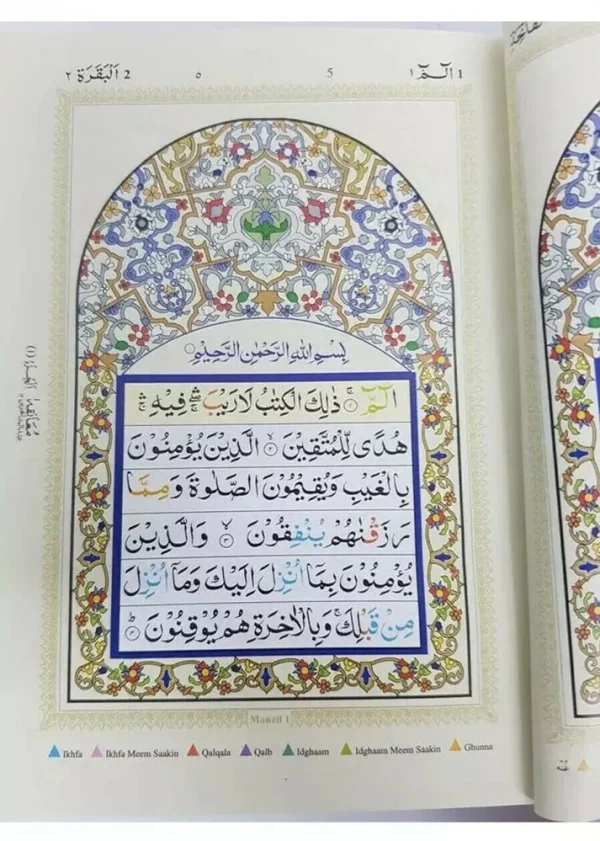 2 اَلْبَقَرَة ٢
٥
5
1 الٓمّٓ ١
بِسْمِ اللهِ الرَّحْمٰنِ الرَّحِيْمِ
الٓمّٓ ۚ﴿١﴾ ذٰلِكَ الْكِتٰبُ لَا رَيْبَ ۛۚ فِيْهِ ۛۚ
هُدًى لِّلْمُتَّقِيْنَ ۙ﴿٢﴾ الَّذِيْنَ يُؤْمِنُوْنَ
بِالْغَيْبِ وَيُقِيْمُوْنَ الصَّلٰوةَ وَمِمَّا
رَزَقْنٰهُمْ يُنْفِقُوْنَ ۙ﴿٣﴾ وَالَّذِيْنَ
يُؤْمِنُوْنَ بِمَآ اُنْزِلَ اِلَيْكَ وَمَآ اُنْزِلَ
مِنْ قَبْلِكَ ۚ وَبِالْاٰخِرَةِ هُمْ يُوْقِنُوْنَ ؕ﴿٤﴾
معانقة
(١)
Manzil 1
Ikhfa Ikhfa Meem Saakin Qalqala Qalb Idghaam Idghaam Meem Saakin Ghunna
غنه